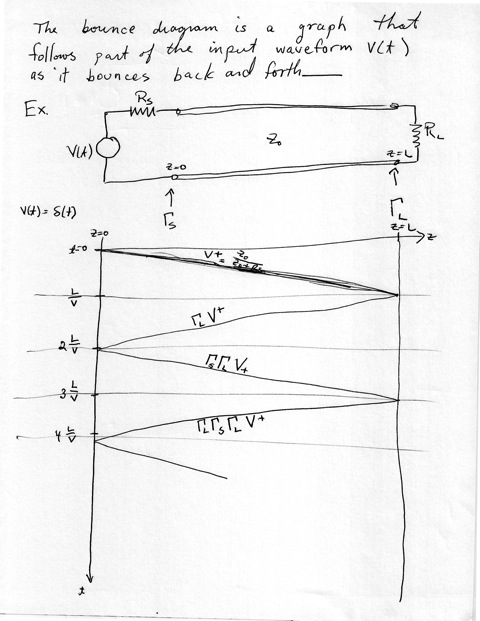 The bounce diagram is a graph that
follows part of the input waveform V(t)
as it bounces back and forth
Ex.
Rs
V(t)
Z₀
RL
z=0
z=L
Γs
ΓL
V(t) = δ(t)
z=0
z=L
z
t=0
V+ = Z₀
L/V
ΓL V+
2 L/V
Γs ΓL V+
3 L/V
ΓL Γs ΓL V+
4 L/V
t